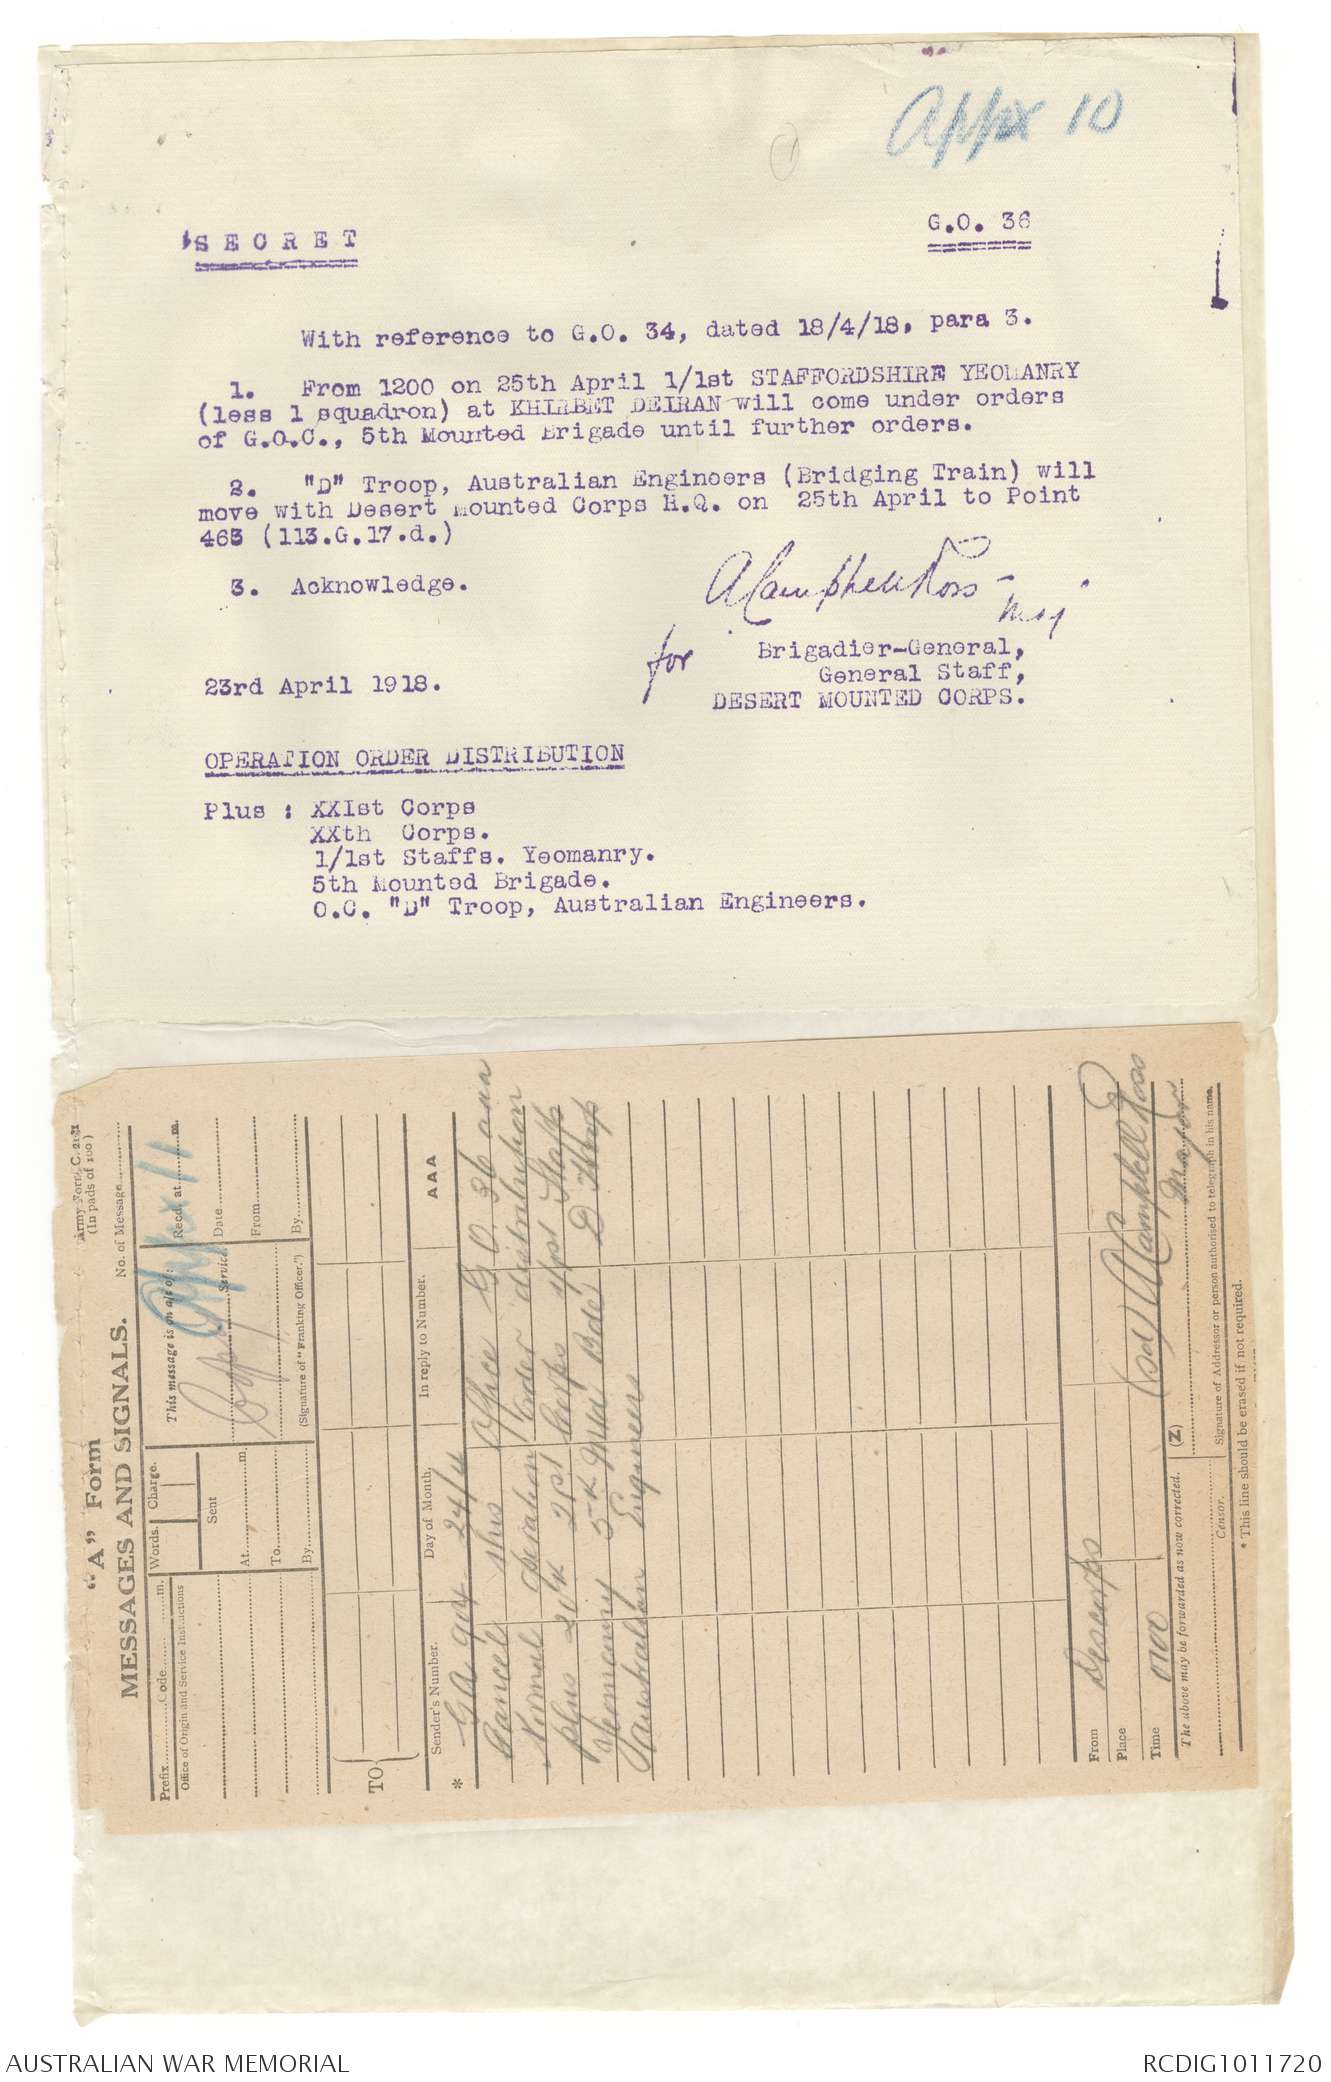 Appx 10
1
SECRET
G.O. 36
With reference to G.O. 34, dated 18/4/18, para 3.
1. From 1200 on 25th April 1/1st STAFFORDSHIRE YEOMANRY
(less 1 squadron) at KHIRBET DEIRAN will come under orders
of G.O.C., 5th Mounted Brigade until further orders.
2. "D" Troop, Australian Engineers (Bridging Train) will
move with Desert Mounted Corps H.Q. on 25th April to Point
463 (113.G.17.d.)
3. Acknowledge.
A Campbell Ross - Maj
for Brigadier-General,
General Staff,
DESERT MOUNTED CORPS.
23rd April 1918.
OPERATION ORDER DISTRIBUTION
Plus : XXIst Corps
XXth Corps.
1/1st Staffs. Yeomanry.
5th Mounted Brigade.
O.C. "D" Troop, Australian Engineers.
"A" Form
Army Form C. 2121
(In pads of 100)
MESSAGES AND SIGNALS.
No. of Message
Prefix Code m.
Words. Charge.
This message is on a/c of:
Appx 11
Recd. at m.
Office of Origin and Service Instructions
Sent
Copy
Service.
Date
At m.
From
To
By
(Signature of "Franking Officer.")
By
TO
Sender's Number.
Day of Month.
In reply to Number.
AAA
* GA 914 24/4
Cancel this office G O. 36 aaa
Normal operation order distribution
plus 20th 21st Corps 1/1st Staffs
Yeomanry 5th Mtd Bde D Troop
Australian Engineers
From Descorps
Place
Time 0700
(sd) A Campbell Ross
Major
The above may be forwarded as now corrected.
(Z)
Censor.
Signature of Addressor or person authorised to telegraph in his name.
* This line should be erased if not required.
AUSTRALIAN WAR MEMORIAL
RCDIG1011720